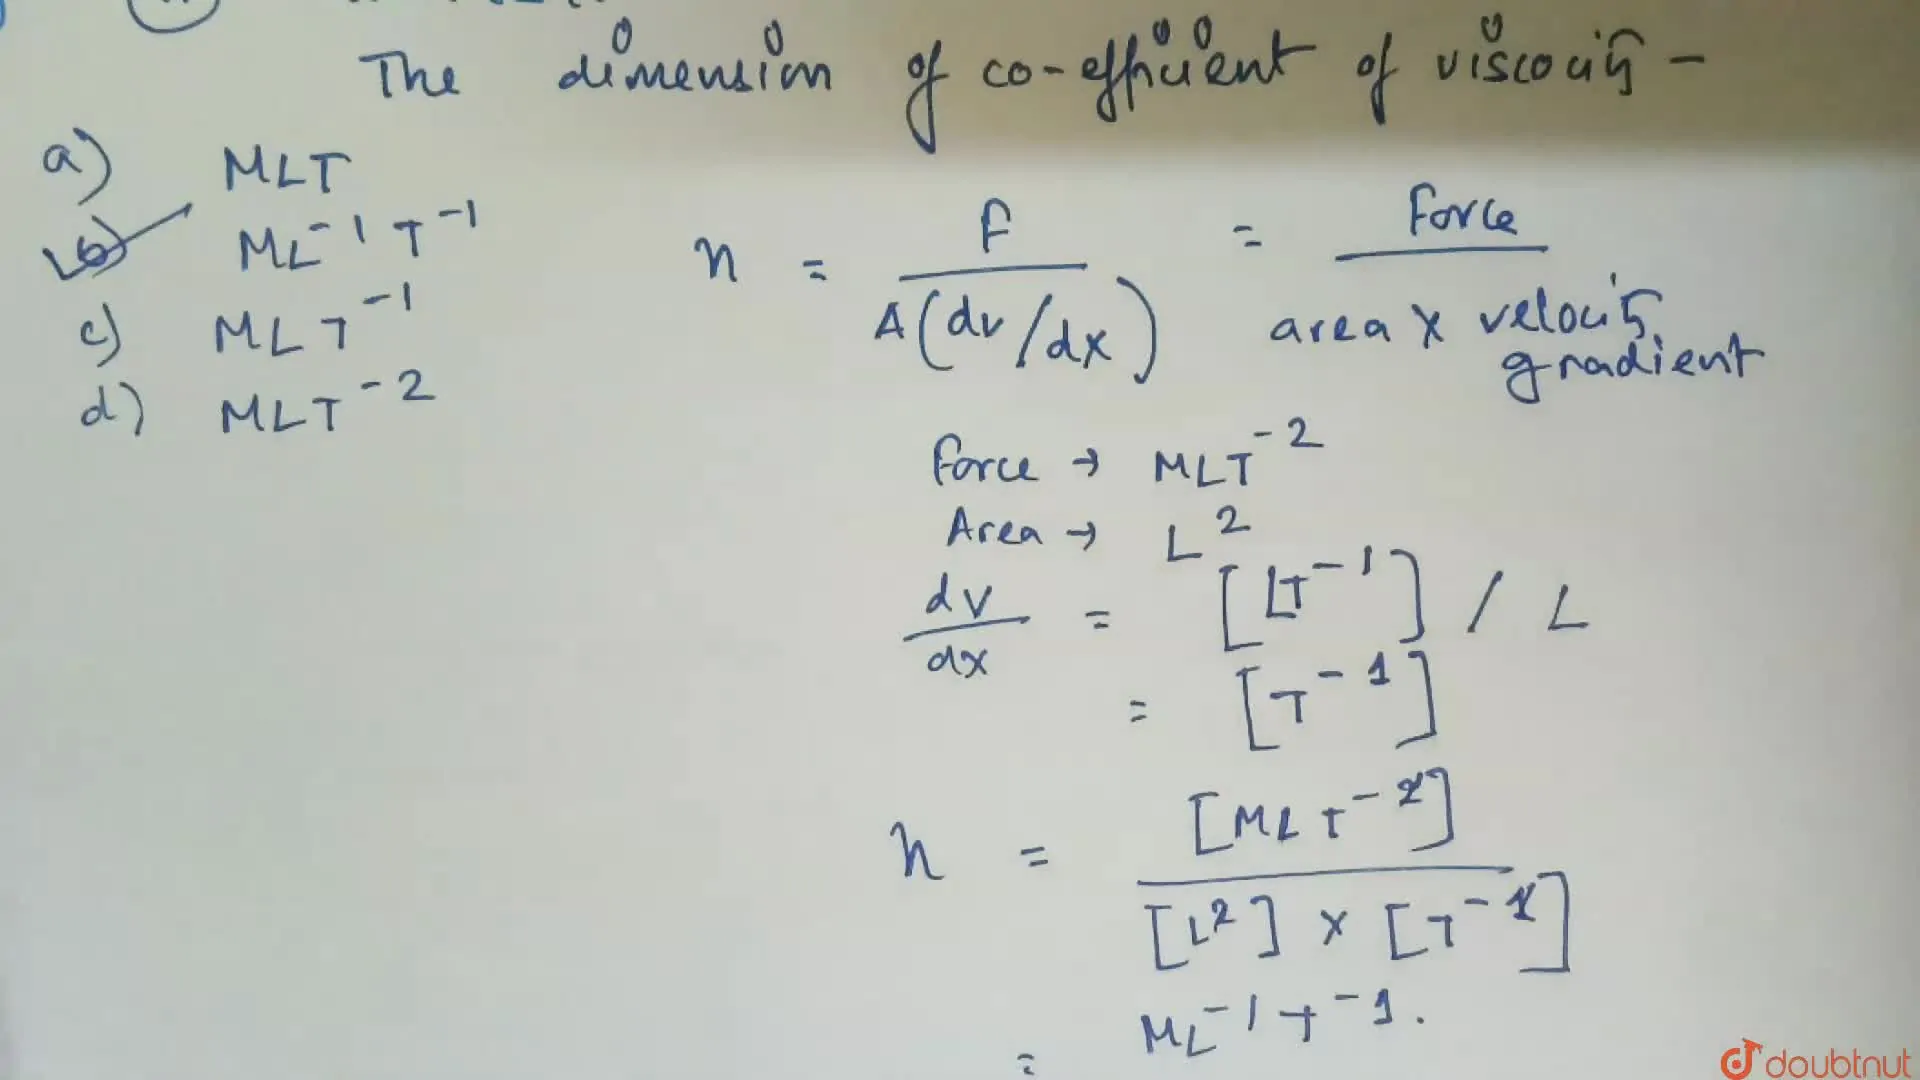 The dimension of co-efficient of viscocity -
a) MLT
b) ML⁻¹T⁻¹
c) MLT⁻¹
d) MLT⁻²
η = F / A(dv/dx) = Force / area x velocity gradient
Force → MLT⁻²
Area → L²
dv/dx = [LT⁻¹] / L
= [T⁻¹]
η = [MLT⁻²] / [L²] x [T⁻¹]
= ML⁻¹T⁻¹.
doubtnut